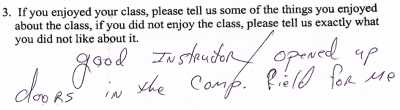 3. If you enjoyed your class, please tell us some of the things you enjoyed
about the class, if you did not enjoy the class, please tell us exactly what
you did not like about it.
good Instructor / opened up
doors in the Comp. Field for me